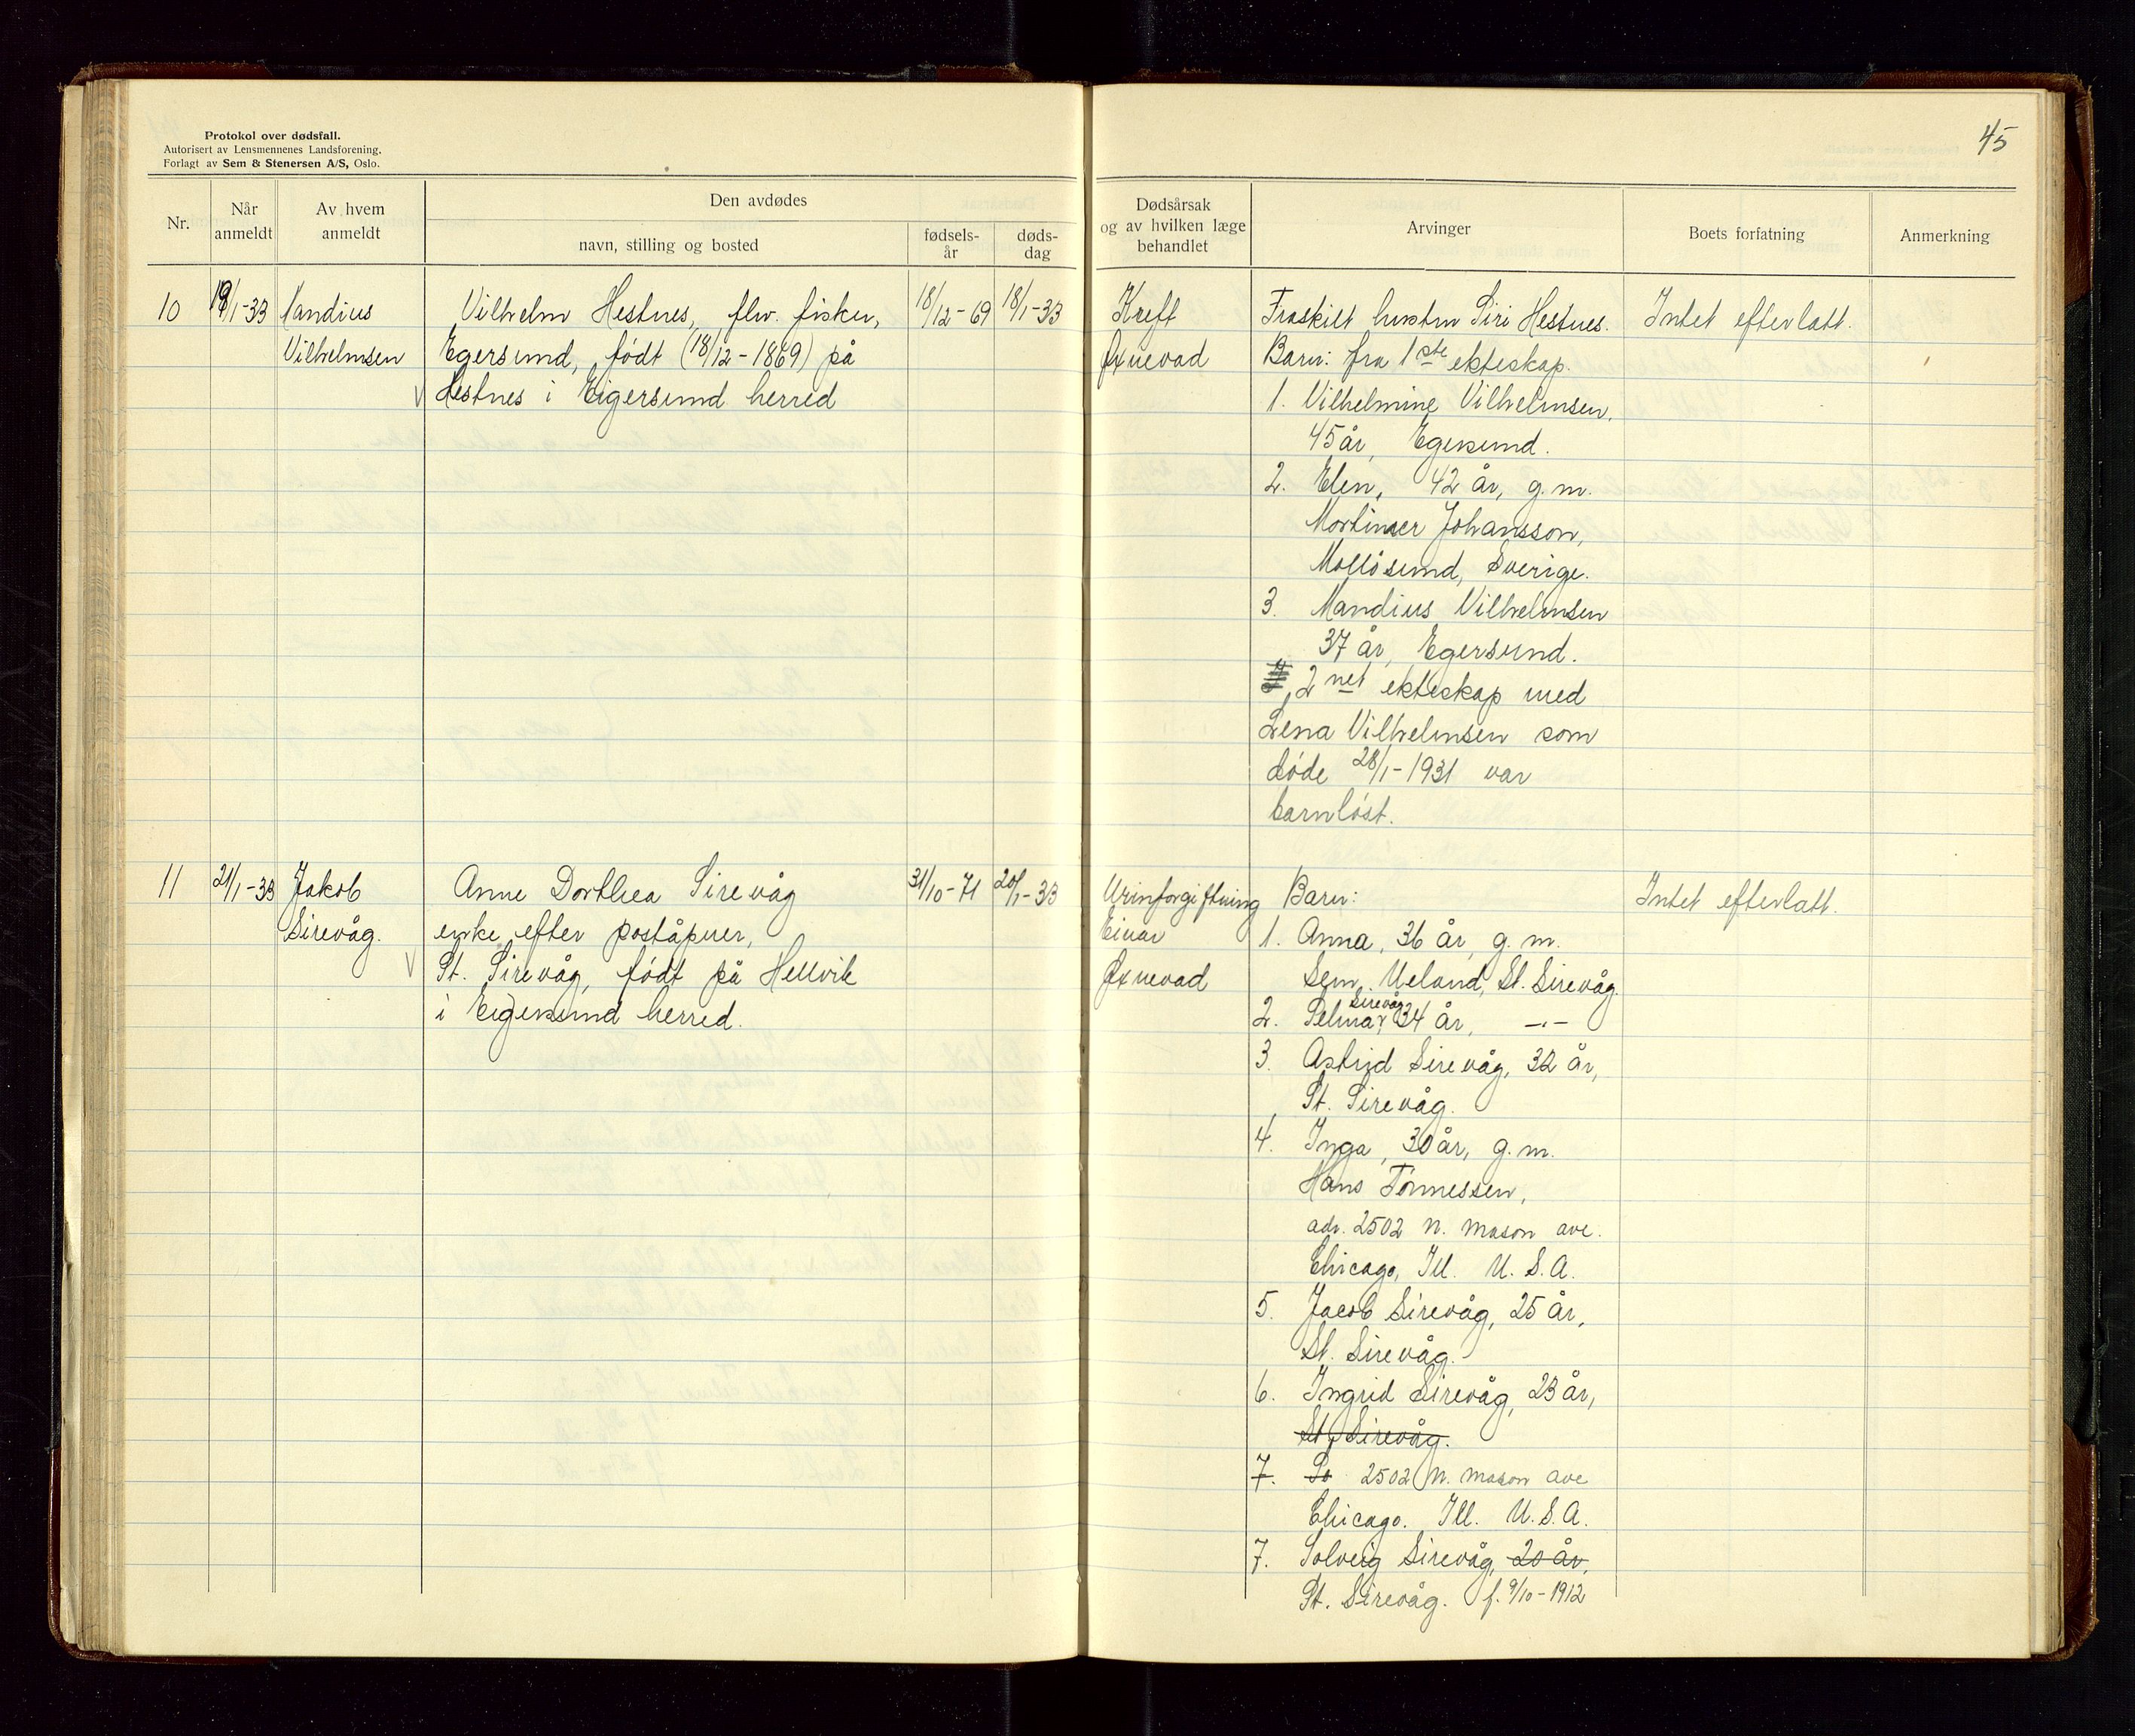 45
Protokol over dødsfall.
Autorisert av Lensmennenes Landsforening.
Forlagt av Sem & Stenersen A/S, Oslo.
Nr.
Når anmeldt
Av hvem anmeldt
Den avdødes
navn, stilling og bosted
fødsels-år
døds-dag
Dødsårsak og av hvilken læge behandlet
Arvinger
Boets forfatning
Anmerkning
10
19/1-33
Mandius
Vilhelmsen
Vilhelm Hestnes, fhv. fisker,
Egersund, født (18/12-1869) på
Hestnes i Eigersund herred
18/12-69
18/1-33
Kreft
Øxnevad
Fraskilt hustru Siri Hestnes.
Barn: fra 1ste ekteskap.
1. Vilhelmine Vilhelmsen,
45 år, Egersund.
2. Elen, 42 år, g. m.
Mortimer Johansson,
Mollösund, Sverige.
3. Mandius Vilhelmsen
37 år, Egersund.
2net ekteskap med
Lena Vilhelmsen som
døde 28/1-1931 var
barnløst.
Intet efterlatt.
11
21/1-33
Jakob
Sirevåg.
Anne Dorthea Sirevåg
enke efter poståpner,
St. Sirevåg, født på Hellvik
i Eigersund herred.
31/10-71
20/1-33
Urinforgiftning
Einar
Øxnevad
Barn:
1. Anna, 36 år, g. m.
Sem. Ueland, St. Sirevåg.
2. Selma Sirevåg, 34 år, —"—
3. Astrid Sirevåg, 32 år,
St. Sirevåg.
4. Inga, 30 år, g. m.
Hans Tönnessen,
adr. 2502 N. Mason ave.
Chicago, Ill. U. S. A.
5. Jacob Sirevåg, 25 år,
St. Sirevåg.
6. Ingrid Sirevåg, 23 år,
St. Sirevåg.
7. So 2502 N. Mason ave
Chicago. Ill. U. S. A.
7. Solveig Sirevåg, 20 år,
St. Sirevåg. f. 9/10-1912
Intet efterlatt.